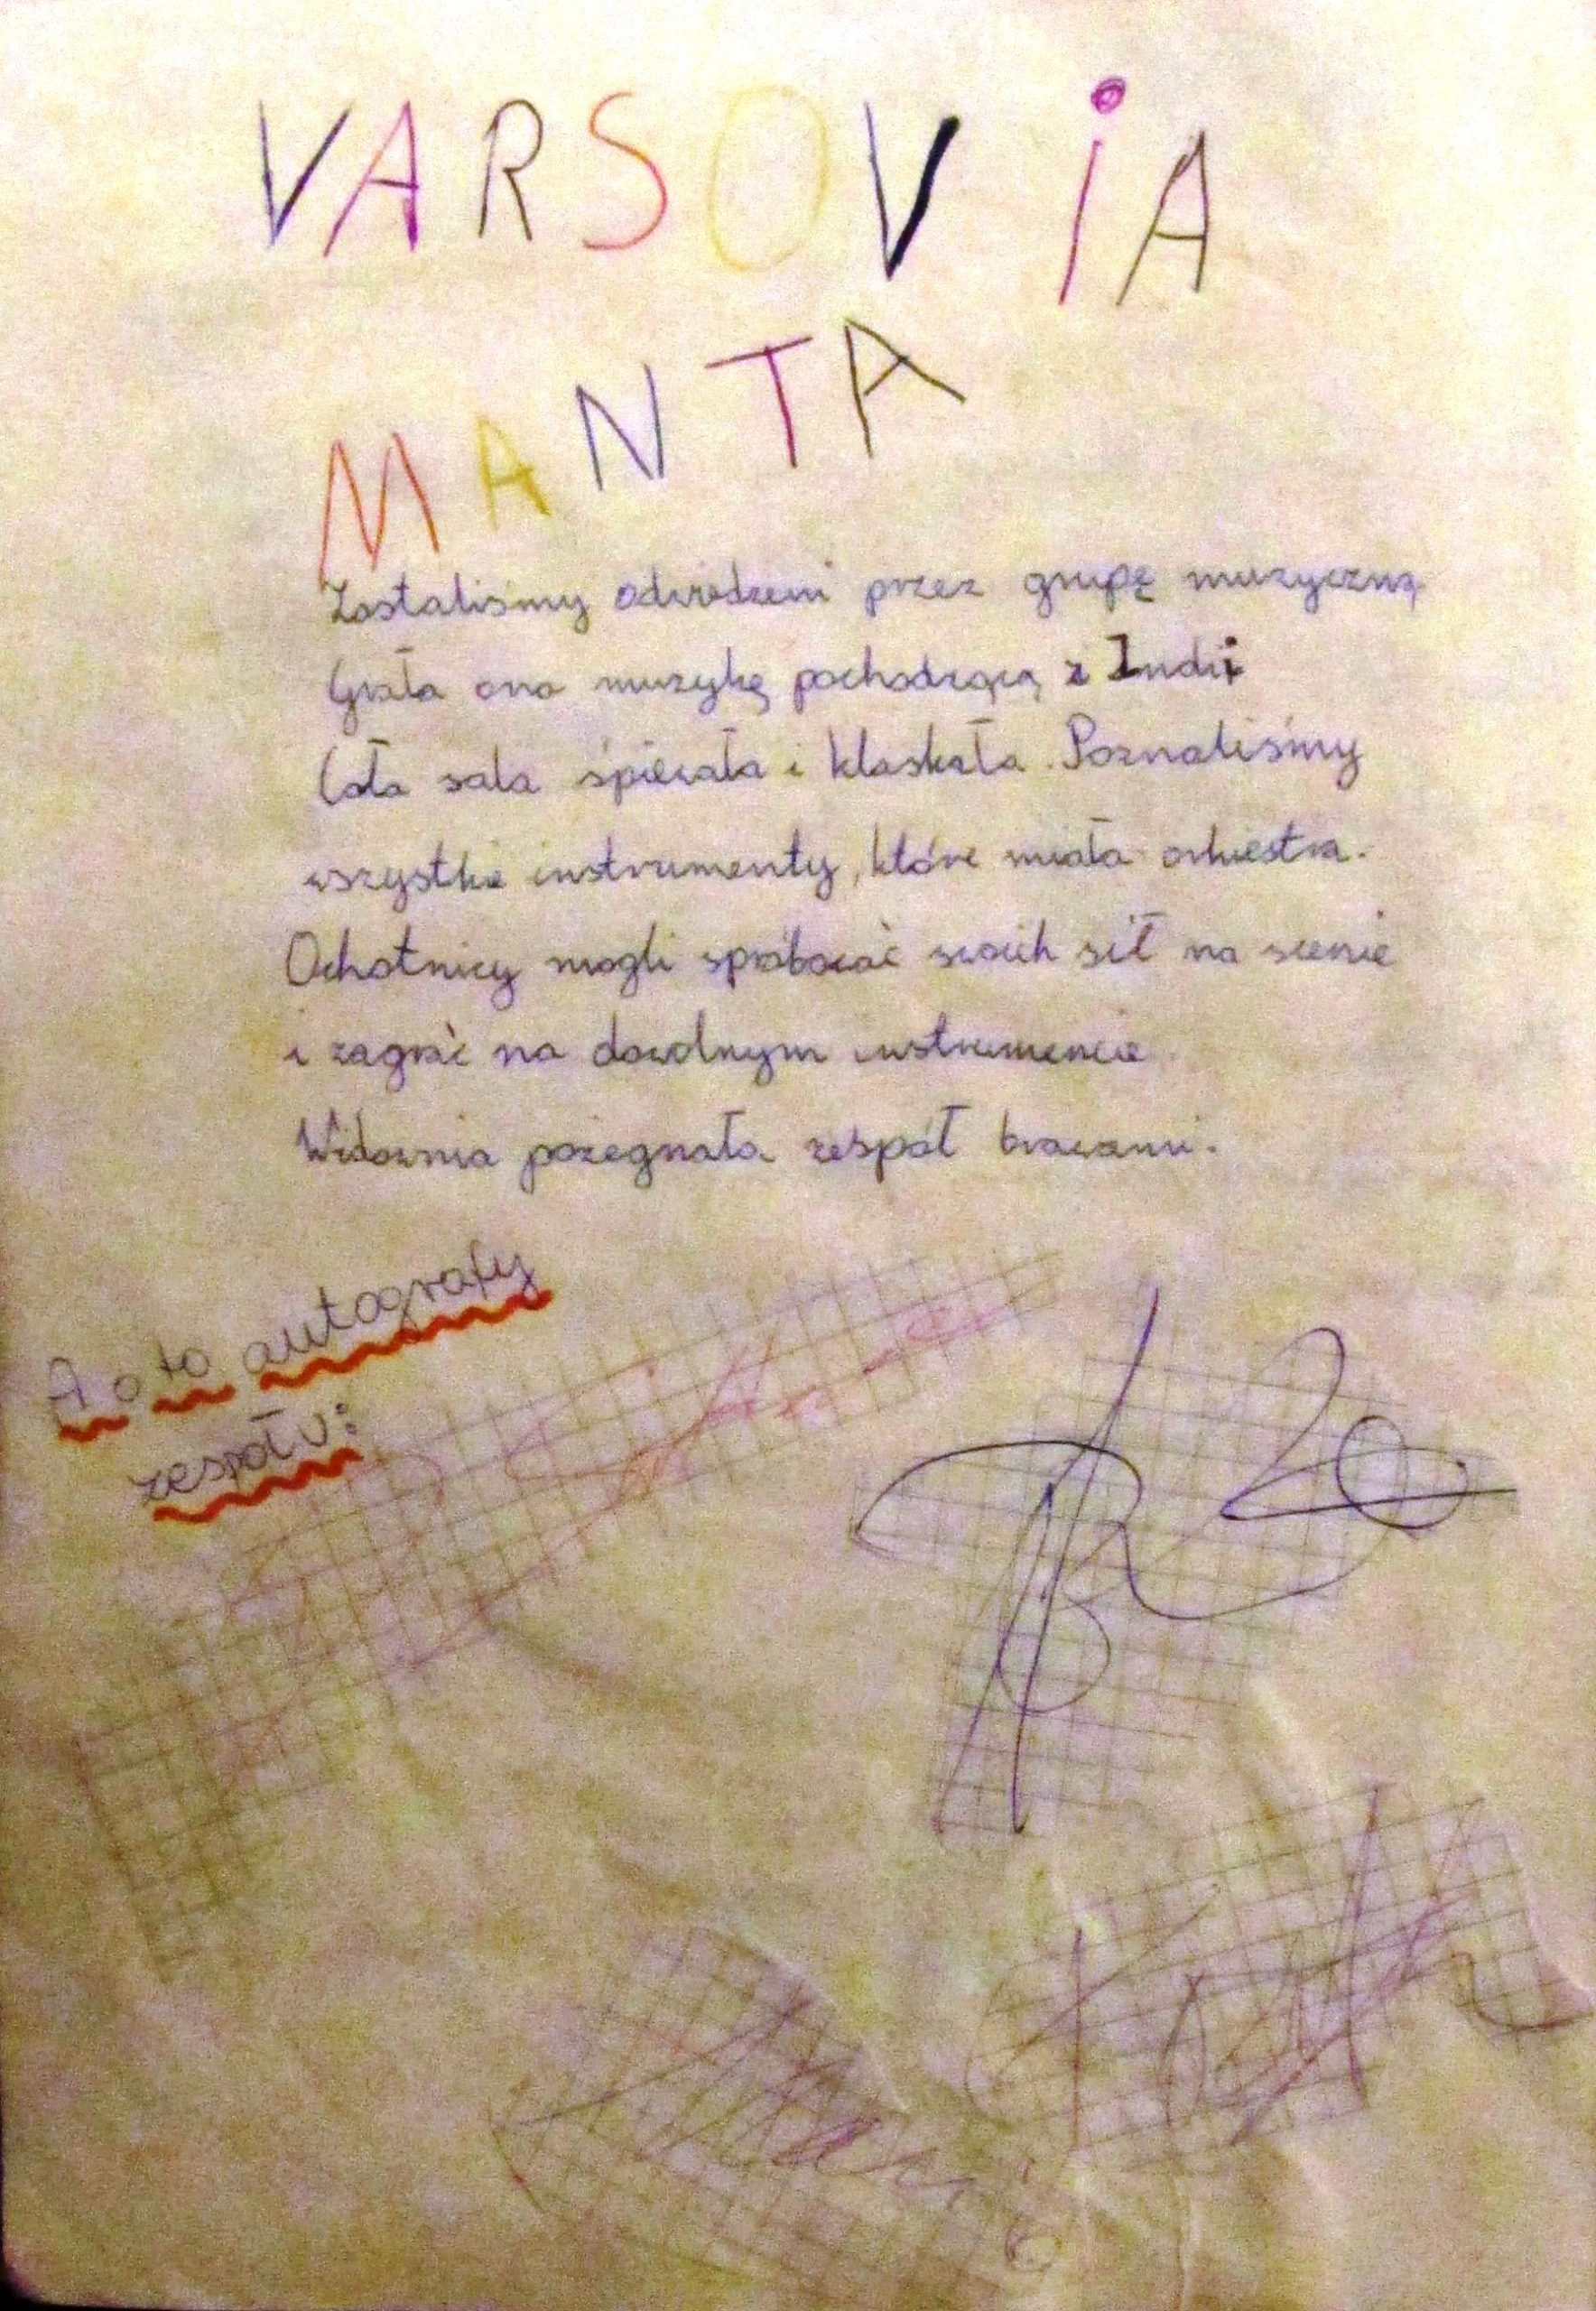 VARSOViA
MANTA
Zostaliśmy odwiedzeni przez grupę muzyczną
Grała ona muzykę pochodzącą z Indii
Cała sala śpiewała i klaskała. Poznaliśmy
wszystkie instrumenty, które miała orkiestra.
Ochotnicy mogli spróbować swoich sił na scenie
i zagrać na dowolnym instrumencie
Widownia pożegnała zespół brawami.
A oto autografy
zespołu: